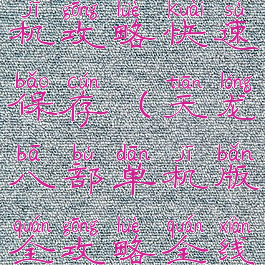 jī gōng luè kuài sù
机攻略快速
bǎo cún tiān lóng
保存（天龙
bā bù dān jī bǎn
八部单机版
quán gōng luè quán xiàn
全攻略全线